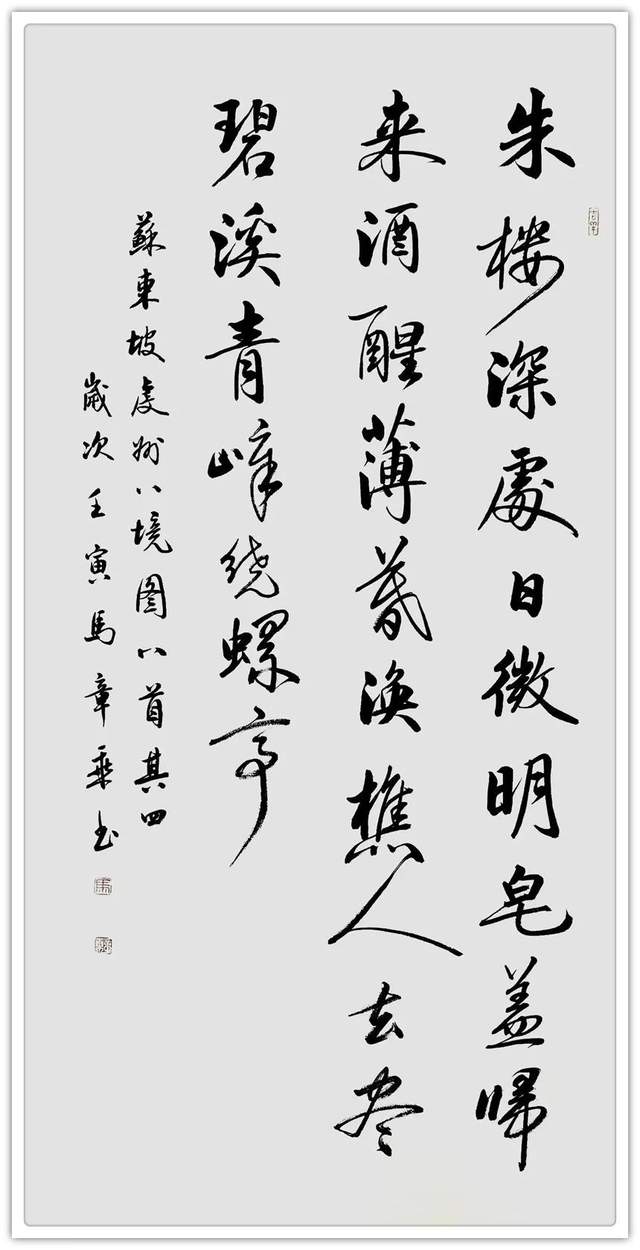 朱楼深處日微明皂盖歸
来酒醒薄暮渔樵人去尽
碧溪青峰绕螺亭
蘇東坡虔州八境图八首其四
歲次壬寅馬章乘书